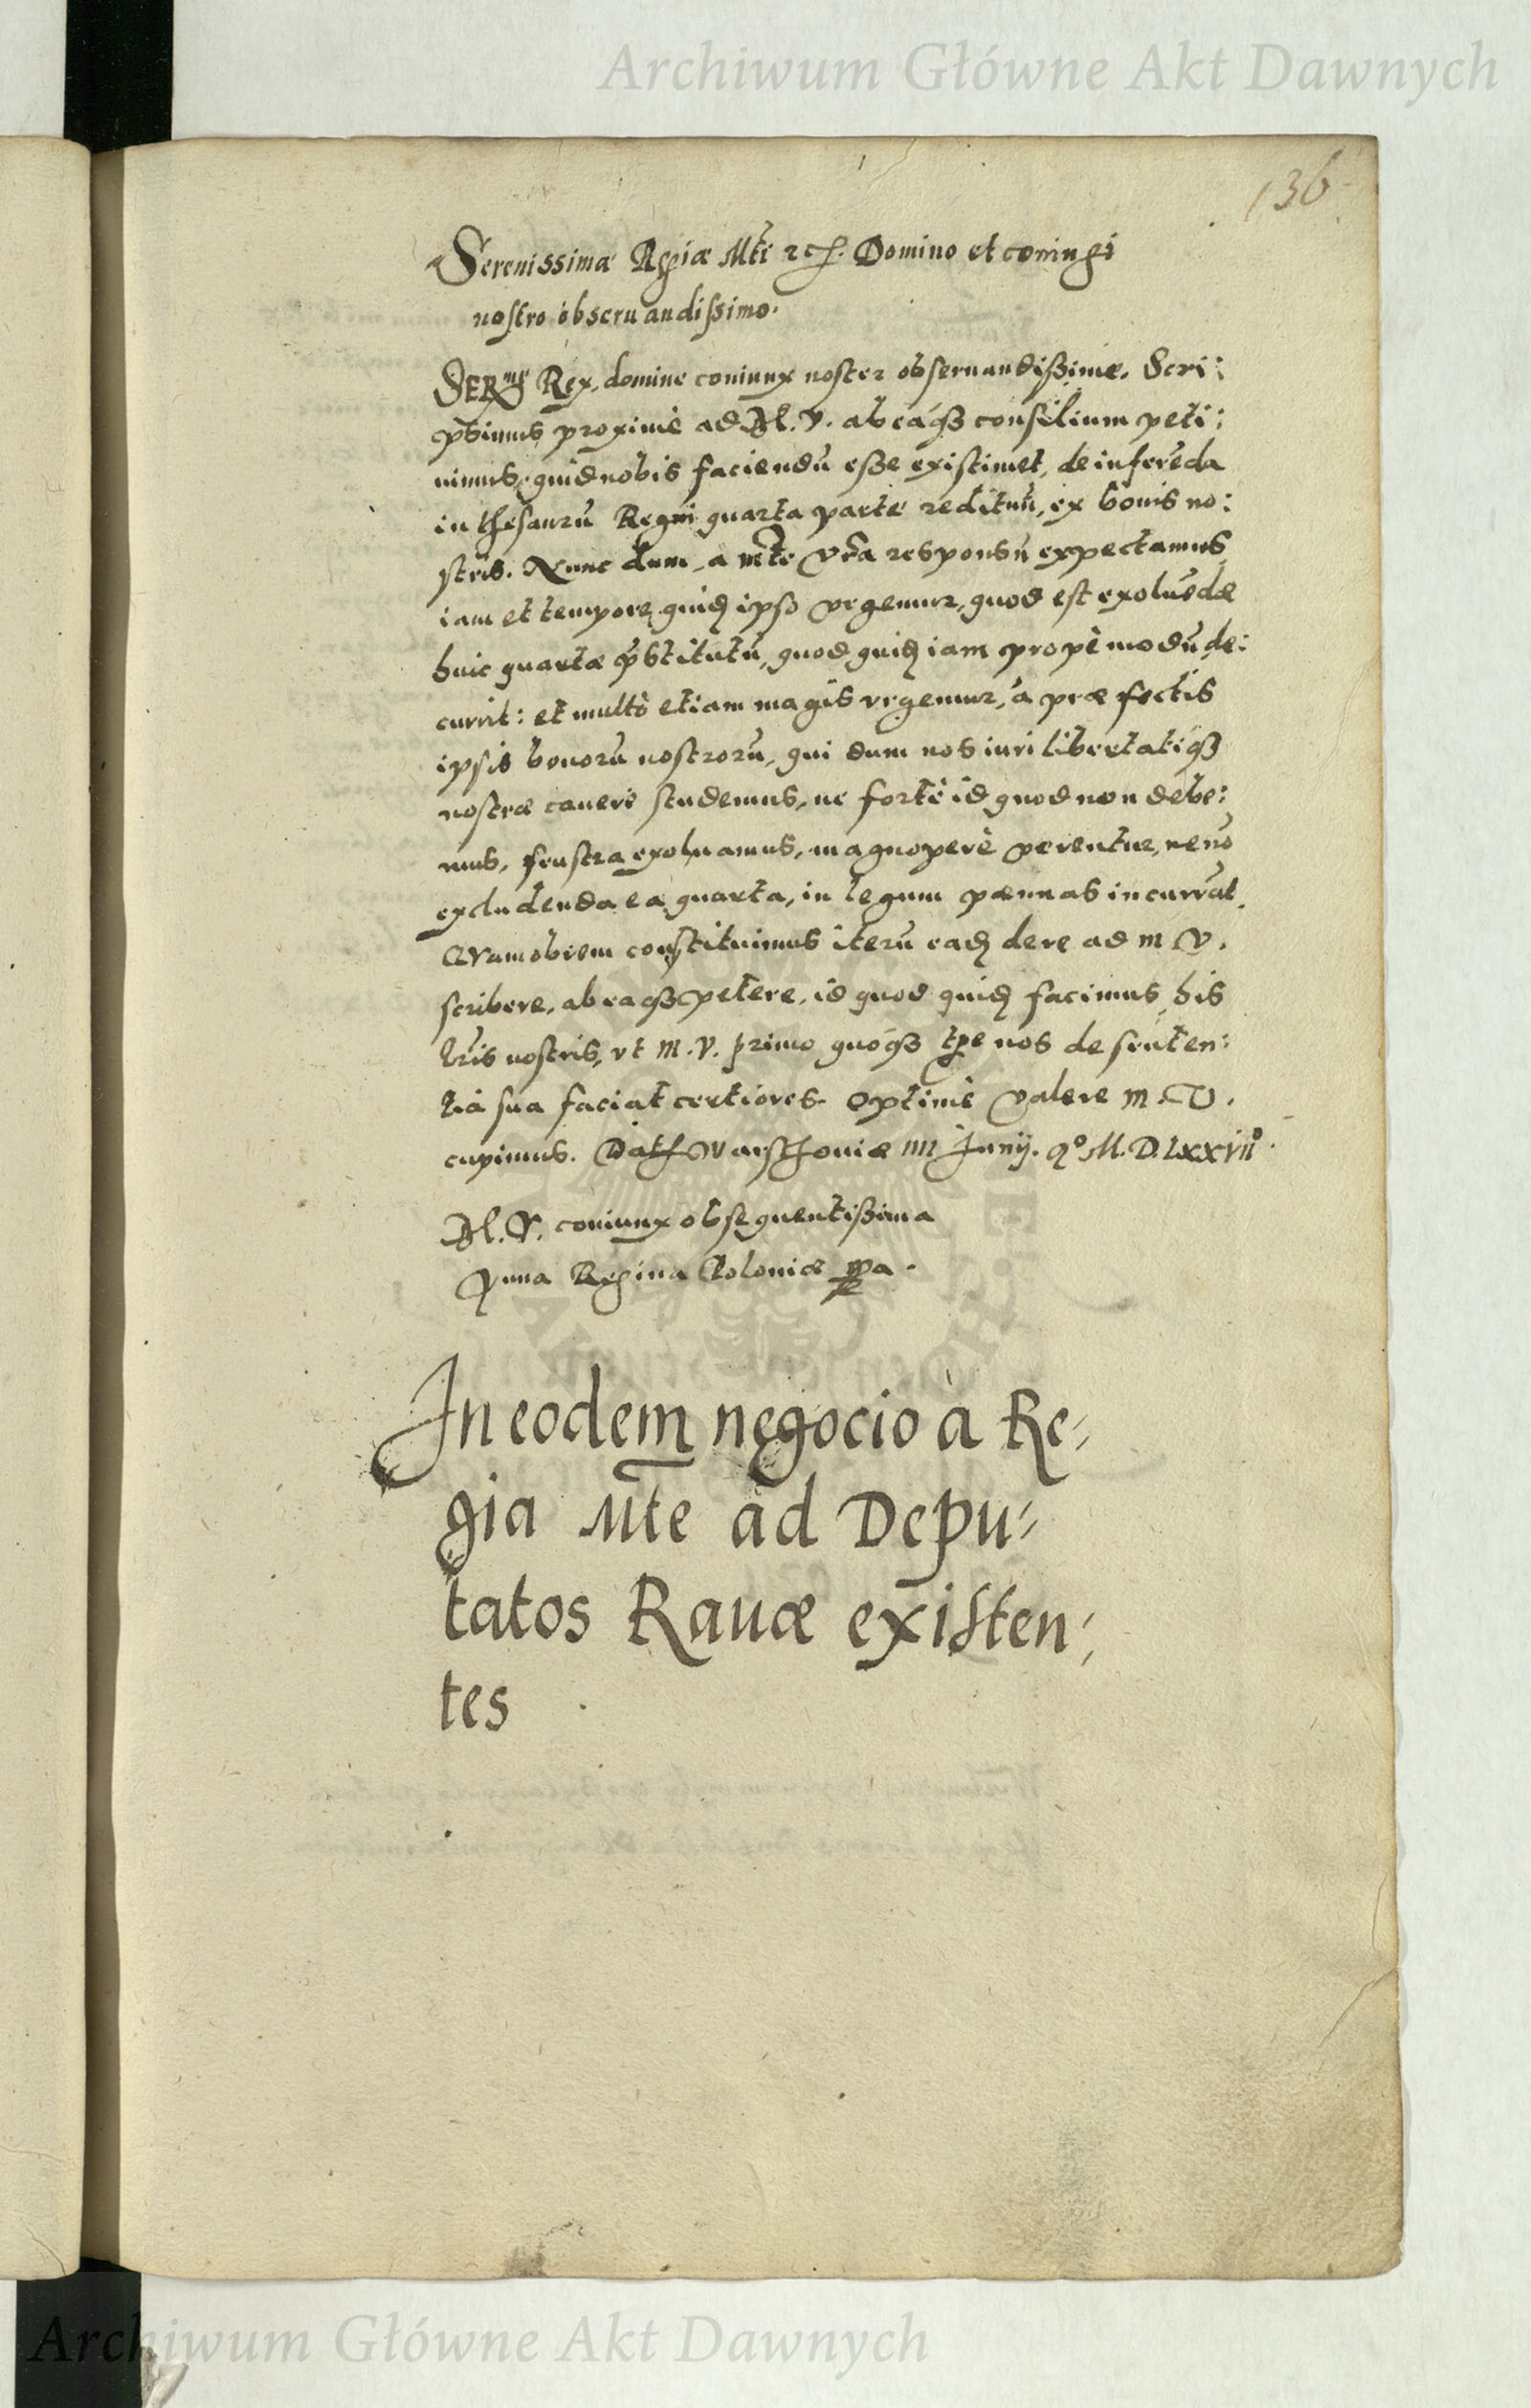 Archiwum Główne Akt Dawnych
136
Serenissimæ Regiæ Mti etc. Domino et coniugi
nostro obseruandissimo.
SERme Rex, domine coniunx noster obseruandißime. Scri:
psimus proximè ad M. V. ab eaq3 consilium peti:
uimus, quid nobis faciendū eße existimet, de inferēda
in thesaurū Regni quarta parte redituū, ex bonis no:
stris. Nunc dum, a mte vra responsū expectamus,
iam et tempore quidē ipso vrgemur, quod est exoluēdæ
huic quartæ p̄stitutū, quod quidē iam propè modū de:
currit: et multò etiam magis vrgemur, à præfectis
ipsis bonorū nostrorū, qui dum nos iuri libertatiq3
nostræ cauere studemus, ne fortè id quod non debe:
mus, frustra exoluamus, magnoperè verentur, ne nō
excludenda ea quarta, in legum pænnas incurrāt.
Quamobrem constituimus iterū eadē de re ad m V.
scribere, ab eaq3 petere, id quod quidē facimus his
lris nostris, vt M. V. primo quoq3 tpe nos de senten:
tia sua faciat certiores. Optimè valere M. V.
cupimus. Dat Warschouiæ IIII Junij. Ao M. D. LXXVIIo.
M. V. coniunx obsequentißima
Anna Regina Poloniæ ppa.
In eodem negocio à Re-
gia Mte ad Depu-
tatos Rauæ existen-
tes
Archiwum Główne Akt Dawnych